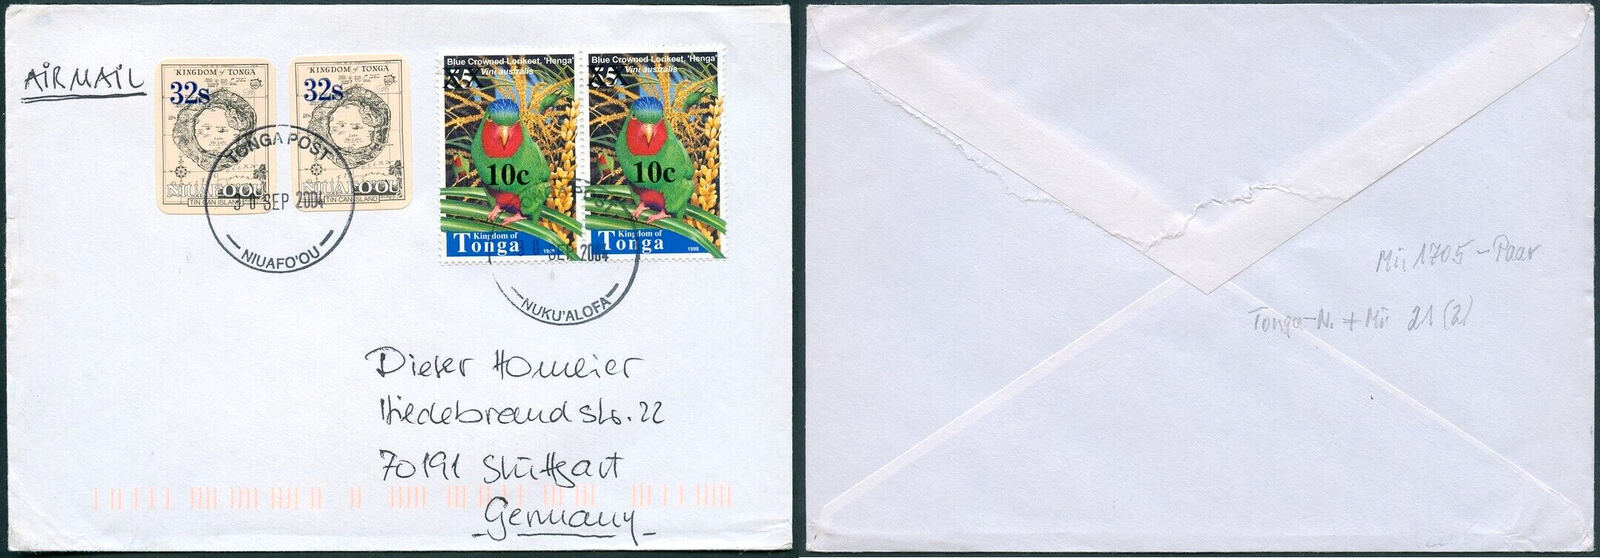 AIRMAIL
KINGDOM of TONGA
32s
NIUAFO'OU
TIN CAN ISLAND
KINGDOM of TONGA
32s
NIUAFO'OU
TIN CAN ISLAND
TONGA POST
30 SEP 2004
NIUAFO'OU
Blue Crowned-Lorikeet, 'Henga'
Vini australis
10c
Kingdom of
Tonga
Blue Crowned-Lorikeet, 'Henga'
Vini australis
10c
Kingdom of
Tonga
1998
30 SEP 2004
NUKU'ALOFA
Dieter Homeier
Hiedebrandstr. 22
70191 Stuttgart
Germany
Mi, 1705 - Paar
Tonga-N. + Mi 21 (2)